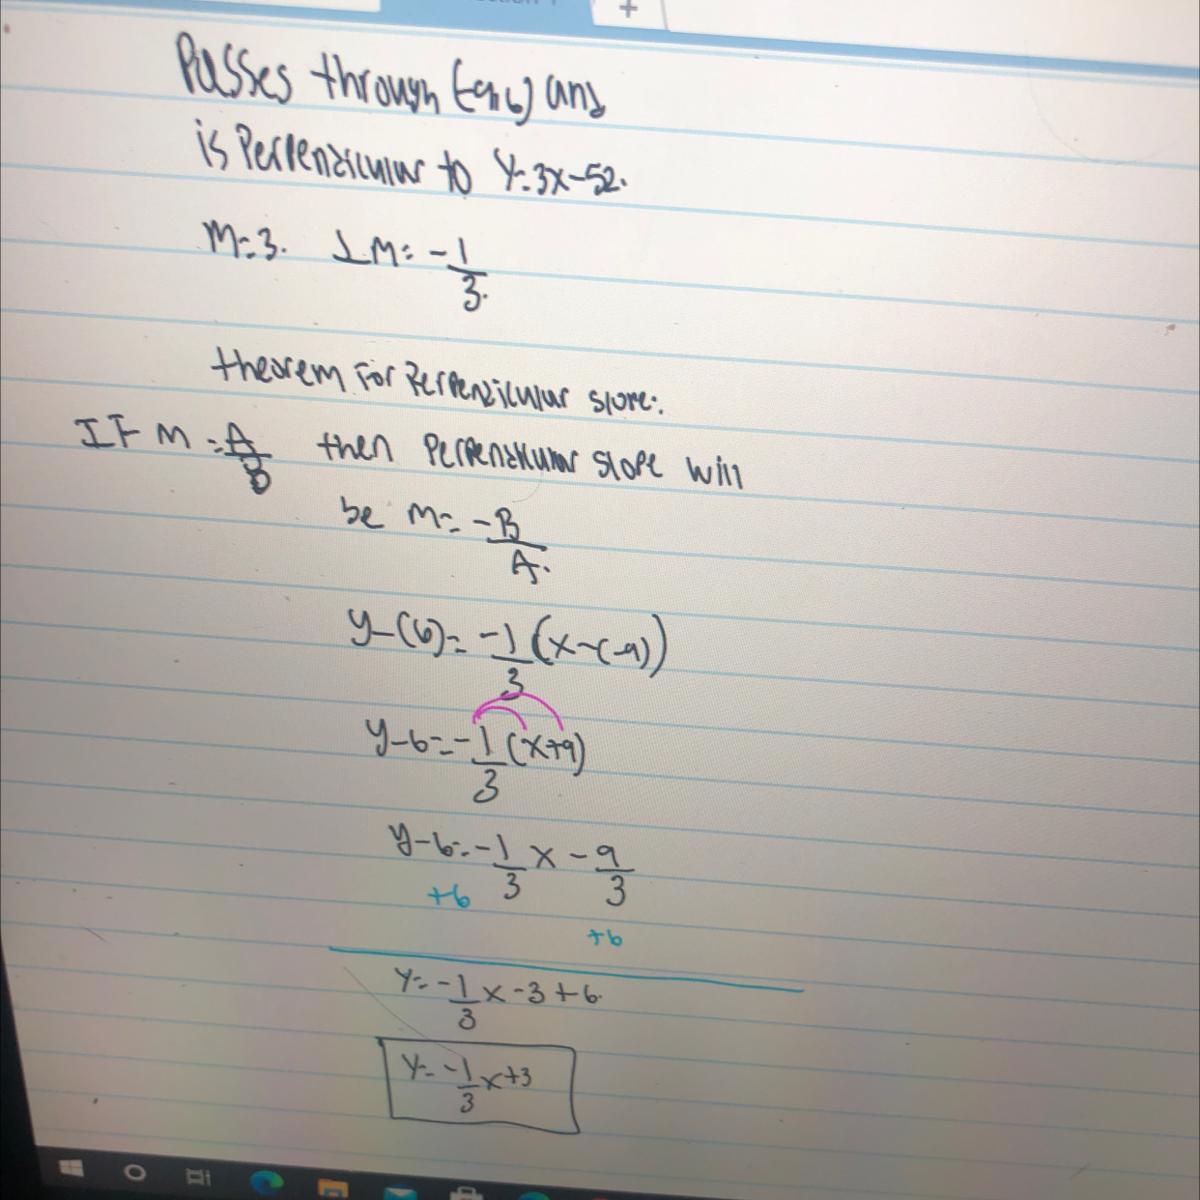 +
Passes through (-9,6) and
is Perpendicular to Y=3x-52.
M=3. ⊥M= -1/3.
theorem For Perpendicular slope:
IF M=A/B then Perpendicular Slope will
be M= -B/A.
y-(6)= -1/3(x-(-9))
y-6= -1/3(x+9)
y-6= -1/3x - 9/3
+6
+6
Y= -1/3x-3+6.
Y= -1/3x+3